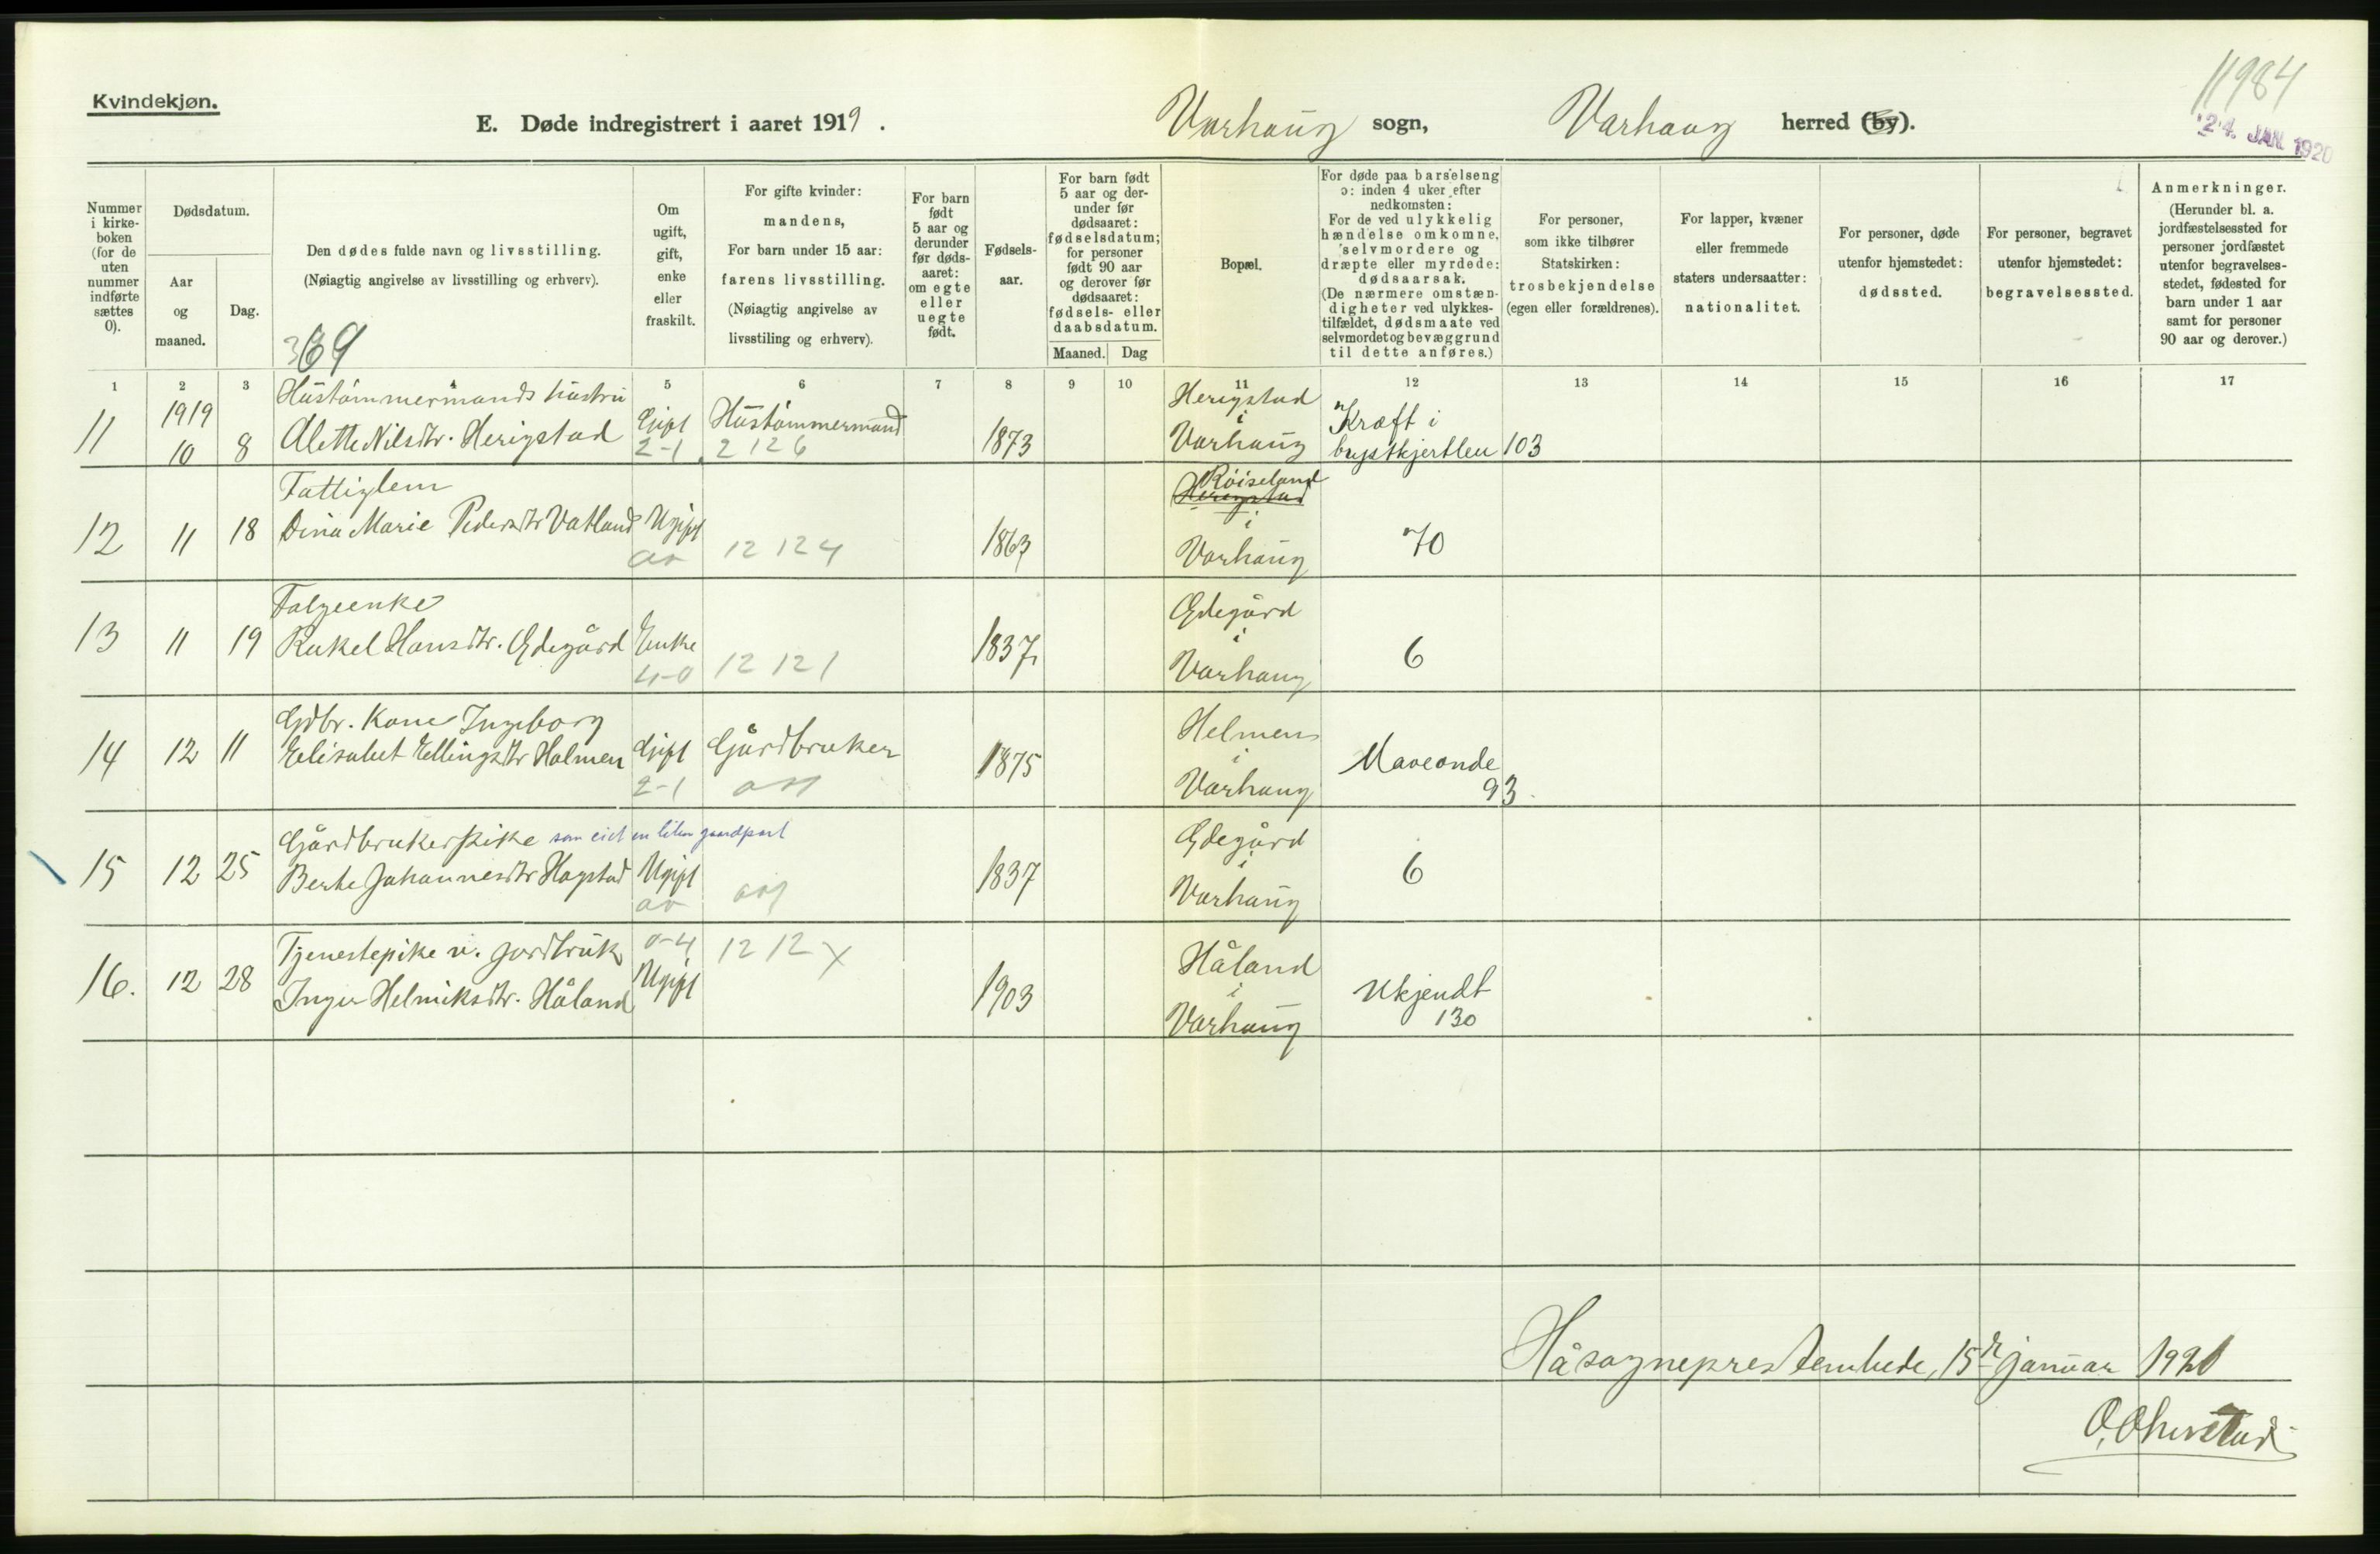 Kvindekjøn.
E. Døde indregistrert i aaret 1919.
Varhaug sogn, Varhaug herred (by).
11984
24. JAN. 1920
Nummer i kirkeboken (for de uten nummer indførte sættes 0).
Dødsdatum.
Aar og maaned.
Dag.
Den dødes fulde navn og livsstilling.
(Nøiagtig angivelse av livsstilling og erhverv).
369
Om ugift, gift, enke eller fraskilt.
For gifte kvinder: mandens,
For barn under 15 aar: farens livsstilling.
(Nøiagtig angivelse av livsstiling og erhverv).
For barn født 5 aar og derunder før dødsaaret: om egte eller uegte født.
Fødselsaar.
For barn født 5 aar og derunder før dødsaaret: fødselsdatum; for personer født 90 aar og derover før dødsaaret: fødsels- eller daabsdatum.
Maaned. Dag
Bopæl.
For døde paa barselseng ɔ: inden 4 uker efter nedkomsten:
For de ved ulykkelig hændelse omkomne, selvmordere og dræpte eller myrdede: dødsaarsak.
(De nærmere omstændigheter ved ulykkestilfældet, dødsmaate ved selvmordet og bevæggrund til dette anføres.)
For personer, som ikke tilhører Statskirken: trosbekjendelse (egen eller forældrenes).
For lapper, kvæner eller fremmede staters undersaatter: nationalitet.
For personer, døde utenfor hjemstedet: dødssted.
For personer, begravet utenfor hjemstedet: begravelsessted.
Anmerkninger.
(Herunder bl. a. jordfæstelsessted for personer jordfæstet utenfor begravelsesstedet, fødested for barn under 1 aar samt for personer 90 aar og derover.)
1 2 3 5 6 7 8 9 10 11 12 13 14 15 16 17
Hústømmermands hústru Herigstad
1919 i Kræft i
11 10 8 Alette Nilsdtr. Herigstad Gift Hústømmermand 1873 Varhaug brystkjertlen 103
2-1 2 126
Fattiglem Røiseland
Herigstad
12 11 18 Dina Marie Pedersdtr Vatland Ugift 1863 i Varhaug 70
av 12 124
Følgeenke Ødegård
13 11 19 Rakel Hansdtr. Ødegård Enke 1837 i Varhaug 6
4-0 12 121
Gdbr. Kone Ingeborg Helmen
14 12 11 Elisabet Ellingsdtr Holmen Gift Gårdbruker 1875 i Varhaug Maveonde
2-1 93
Gårdbrukerpike som eiet en liten gaardpart Ødegård
15 12 25 Berte Johannesdtr Hagstad Ugift 1837 i Varhaug 6
av
Tjenestepike v. jordbruk 0-4 12 12 X Håland
16. 12 28 Inger Helmiksdtr. Håland Ugift 1903 i Varhaug Ukjendt
130
Håsogneprestembede, 15de januar 1920